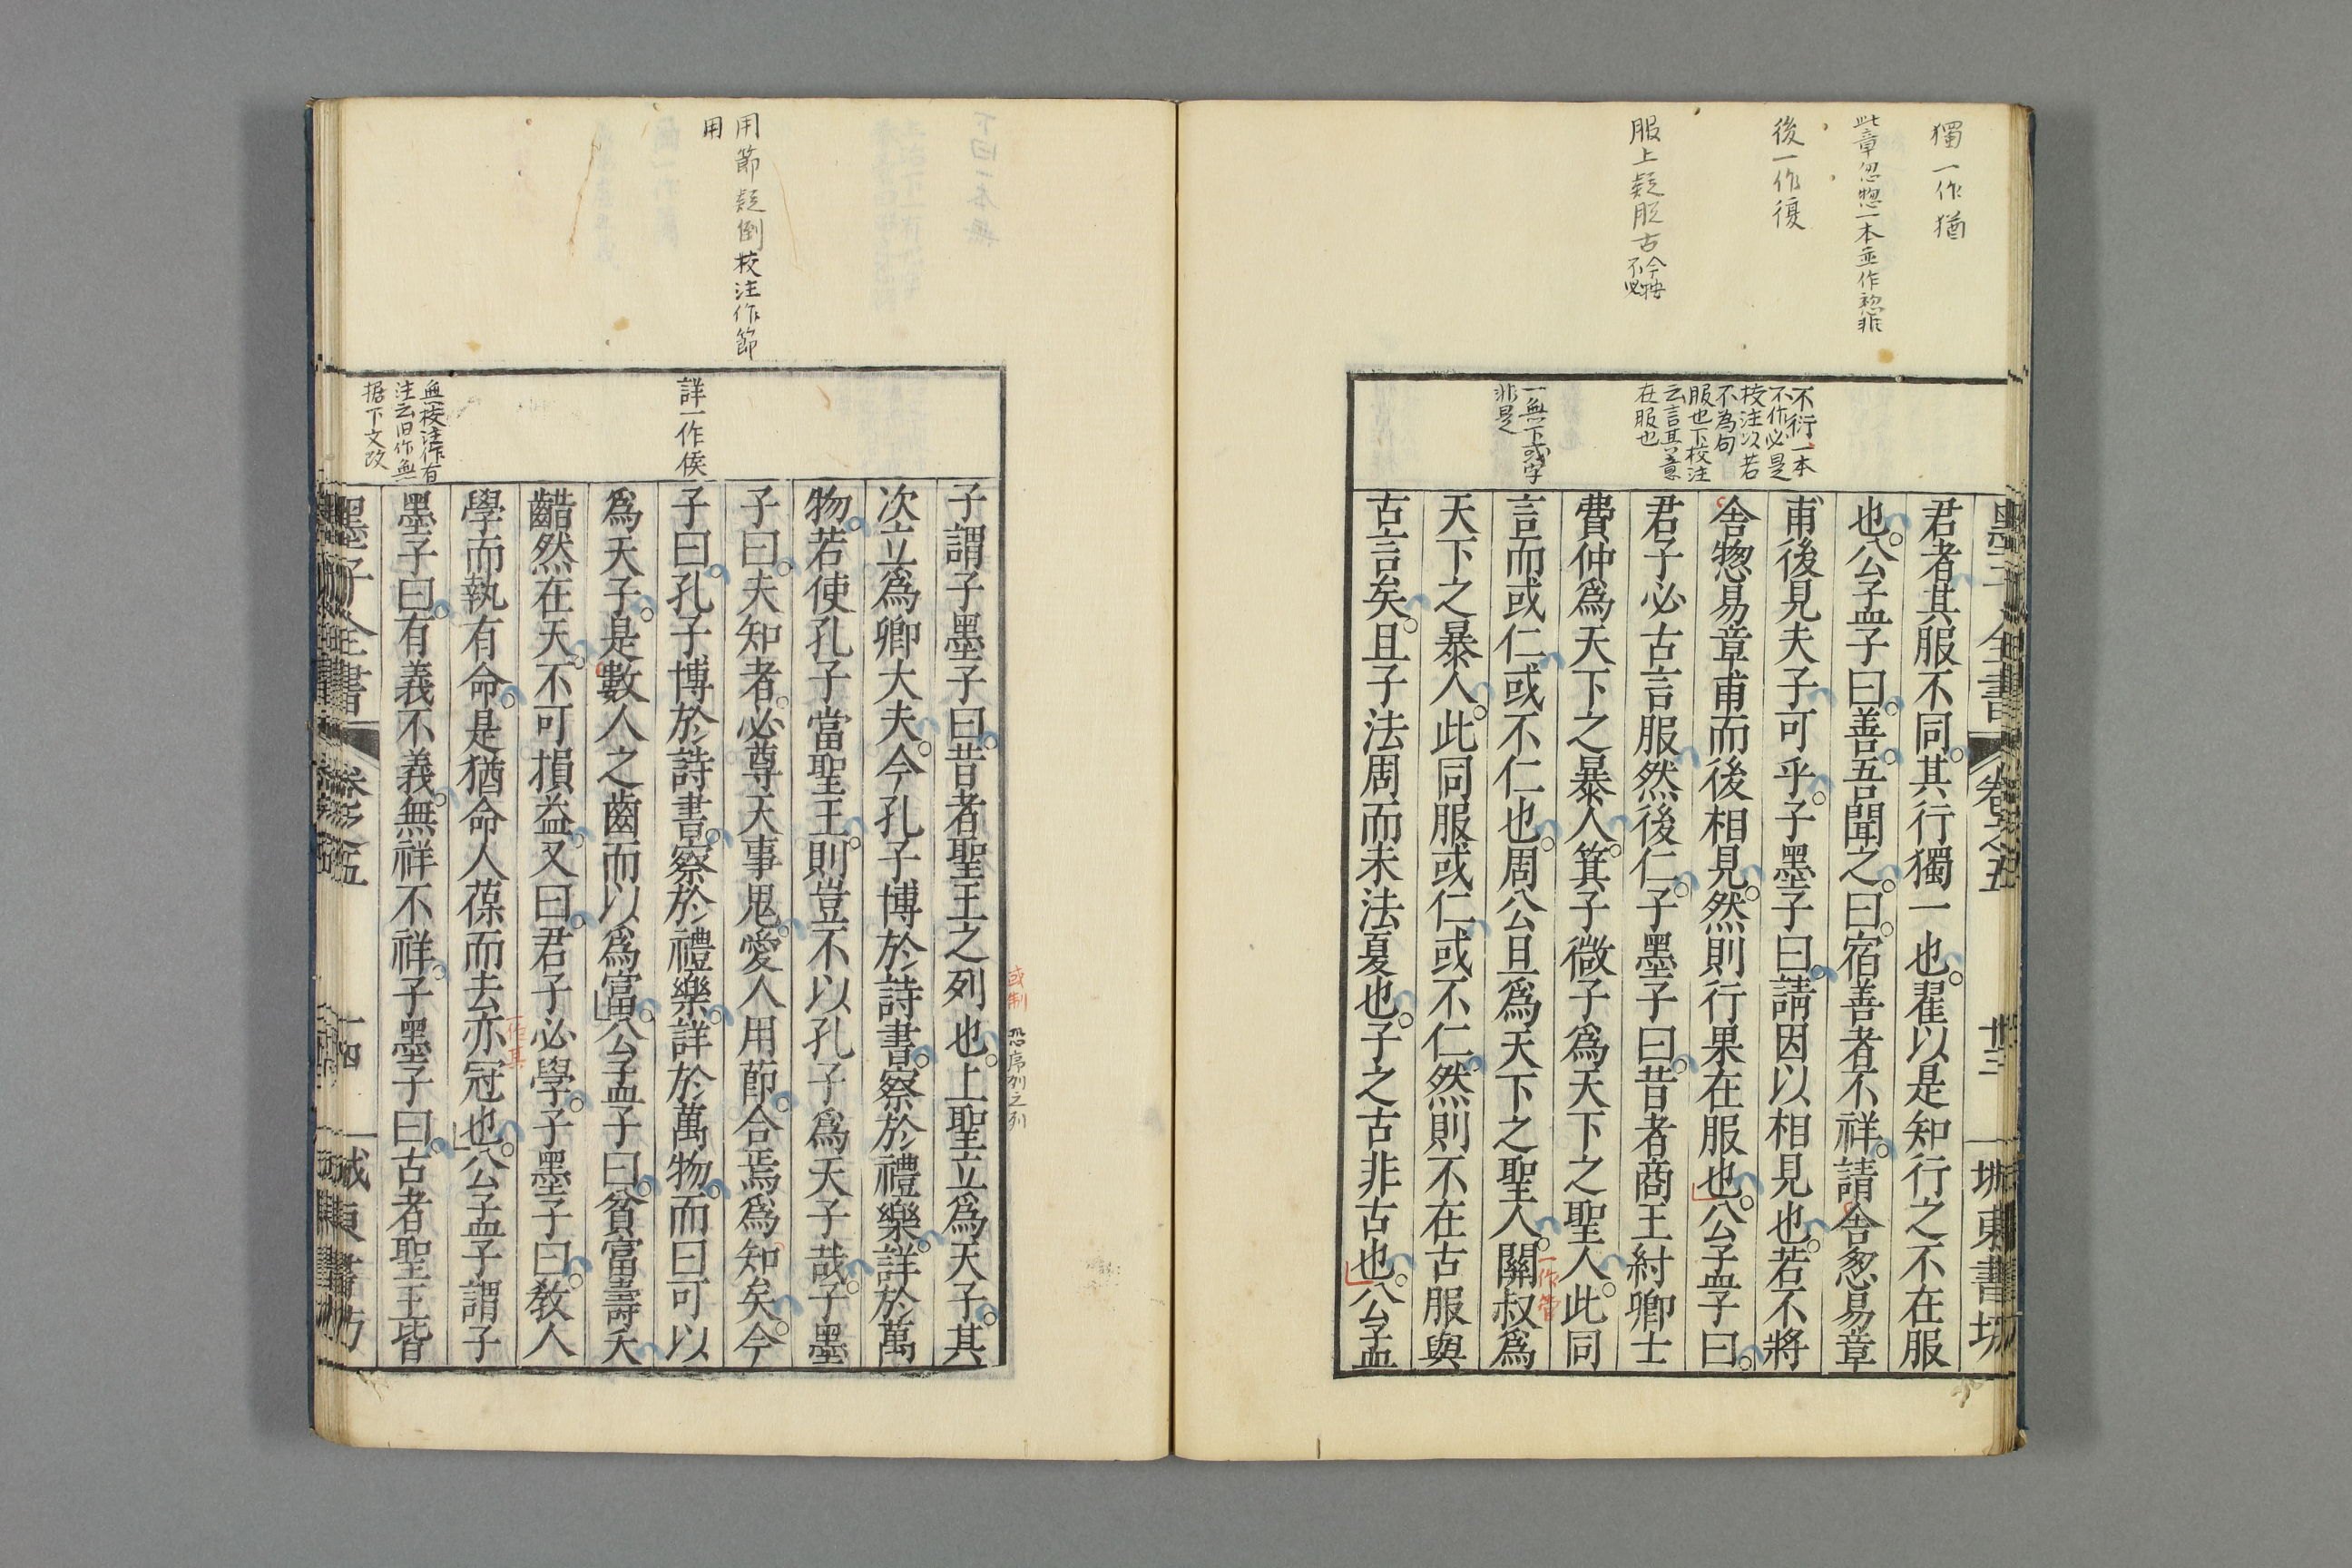 獨一作猶
此章忽惣一本並作惣非
後一作復
服上疑脫古今按不必
不衍一本
不作必是
校注以若
不為句
服也下校注
云言其意
在服也
一無下或字
非是
墨子全書 卷之五 城東書坊
君者其服不同。其行獨一也。翟以是知行之不在服
也。公孟子曰。善。吾聞之。曰。宿善者不祥。請舍怱易章
甫後見夫子可乎。子墨子曰。請因以相見也。若不將
舍惣易章甫而後相見。然則行果在服也。公孟子曰。
君子必古言服然後仁。子墨子曰。昔者商王紂卿士
費仲爲天下之暴人。箕子微子爲天下之聖人。此同
言而或仁或不仁也。周公旦爲天下之聖人。關叔爲
一作管
天下之暴人。此同服或仁或不仁。然則不在古服與
古言矣。且子法周而未法夏也。子之古非古也。公孟
用節疑倒校注作節
用
詳一作候
無校注作有
注云旧作無
据下文改
或制 恐序列之列
子謂子墨子曰。昔者聖王之列也。上聖立爲天子。其
次立爲卿大夫。今孔子博於詩書。察於禮樂。詳於萬
物。若使孔子當聖王。則豈不以孔子爲天子哉。子墨
子曰。夫知者。必尊天事鬼。愛人用節。合焉爲知矣。今
子曰。孔子博於詩書。察於禮樂。詳於萬物。而曰可以
爲天子。是數人之齒而以爲富。公孟子曰。貧富壽夭
齰然在天。不可損益。又曰。君子必學。子墨子曰。敎人
一作其
學而執有命。是猶命人葆而去亦冠也。公孟子謂子
墨子曰。有義不義。無祥不祥。子墨子曰。古者聖王皆
墨子全書 卷之五 城東書坊